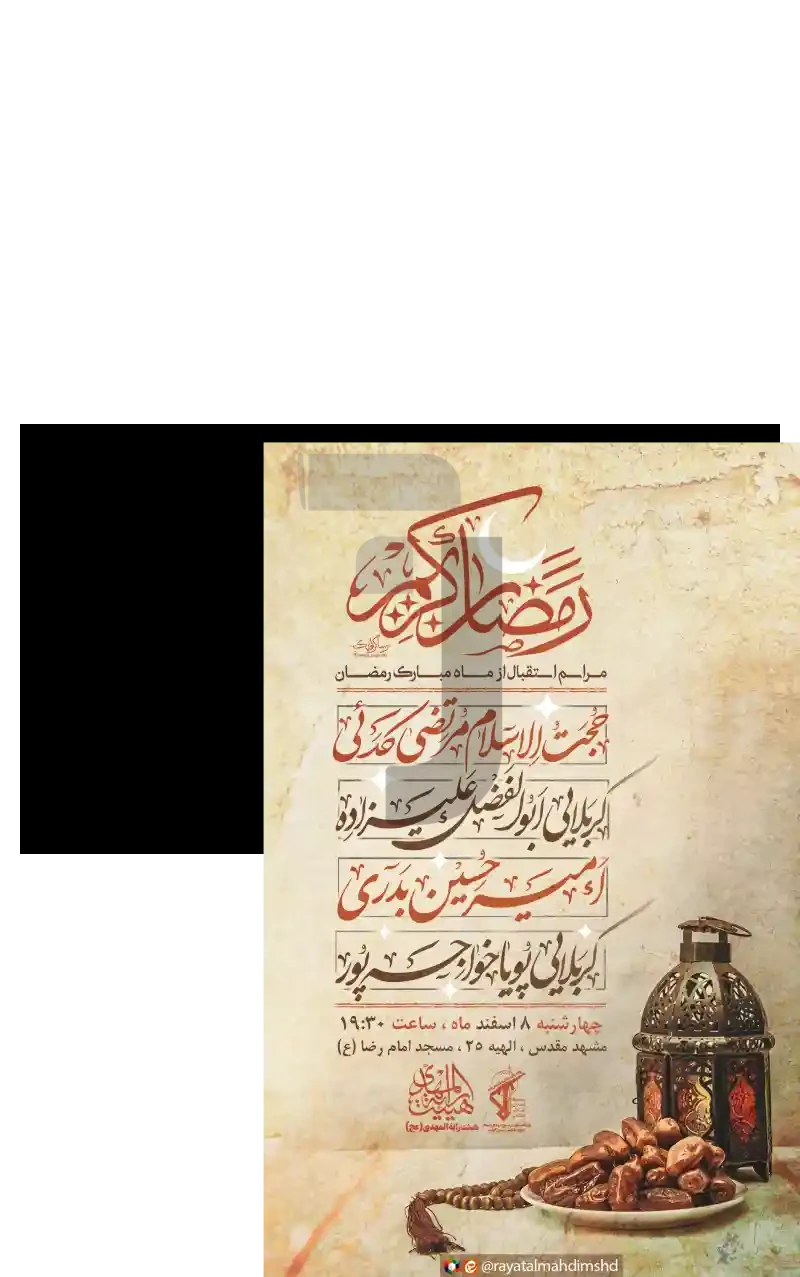 رمضان کریم
مراسم استقبال از ماه مبارک رمضان
حجت الاسلام مرتضی کدئی
کربلایی ابوالفضل علیزاده
امیرحسین بدری
کربلایی پویا خواجه پور
چهارشنبه ۸ اسفند ماه ، ساعت ۱۹:۳۰
مشهد مقدس ، الهیه ۲۵ ، مسجد امام رضا (ع)
هیئت رایة المهدی
هیئت رایة المهدی (عج)
@rayatalmahdimshd